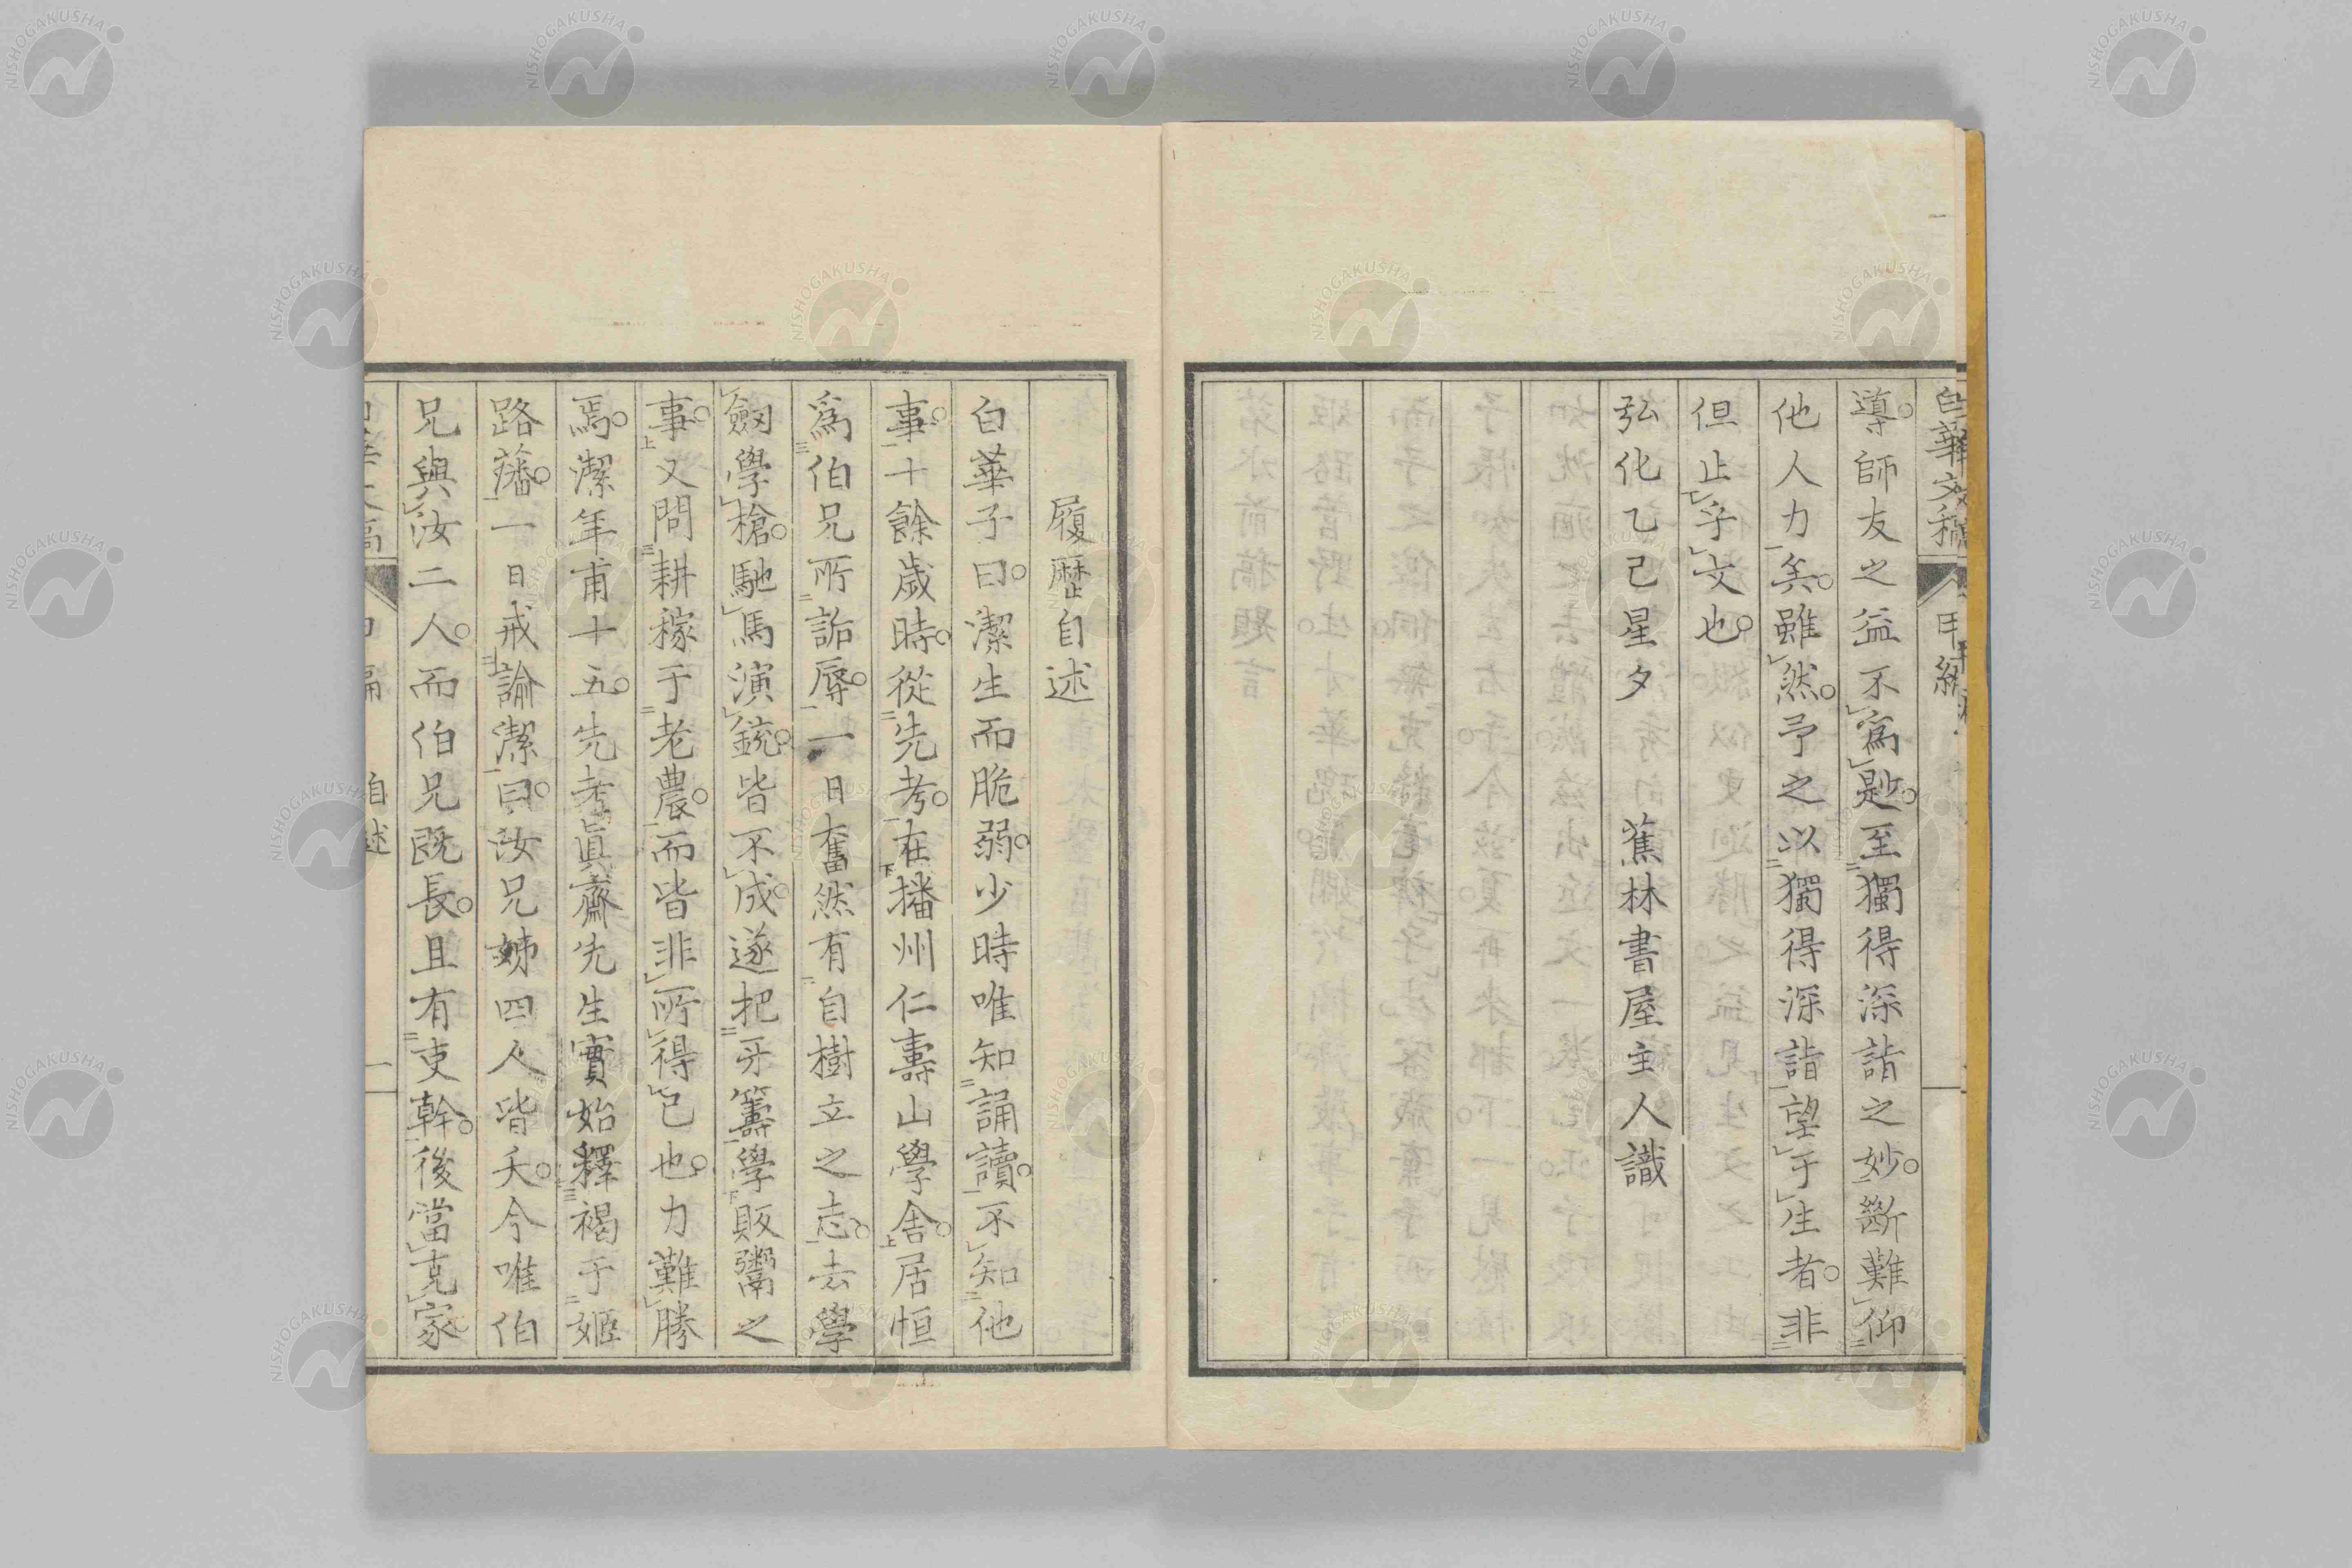 白華文稿 甲編
導師友之益不爲尠至獨得深詣之妙斷難仰
他人力矣雖然予之以獨得深詣望于生者非
但止字文也
弘化乙己星夕 蕉林書屋主人識
履歷自述
白華子曰潔生而脆弱少時唯知誦讀不知他
事十餘歲時從先考在播州仁壽山學舍居恒
爲伯兄所詬辱一日奮然有自樹立之志去學
劔學槍馳馬演銃皆不成遂把牙籌學販鬻之
事又問耕稼于老農而皆非所得已也力難勝
焉潔年甫十五先考眞齋先生實始釋褐于姬
路藩一日戒諭潔曰汝兄姊四人皆夭今唯伯
兄與汝二人而伯兄既長且有吏幹後當克家
自述 一
NISHOGAKUSHA